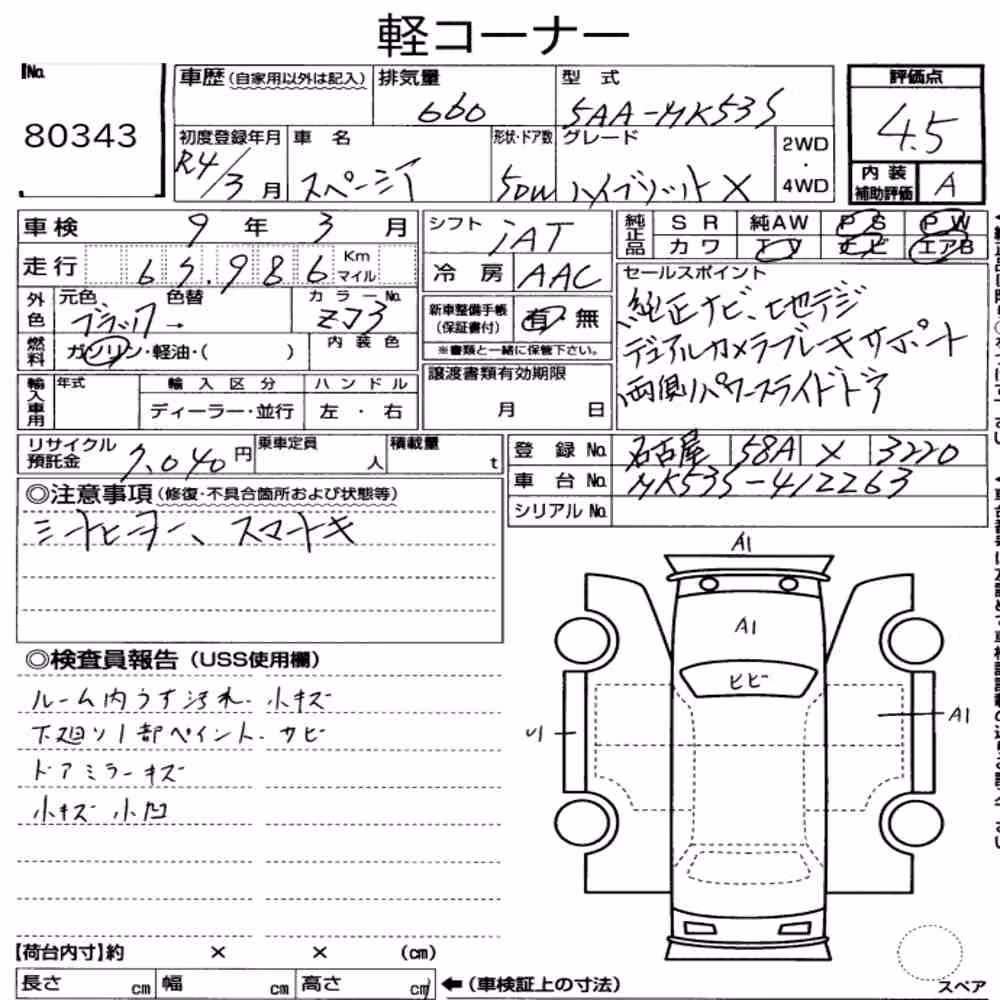 軽コーナー
No.
80343
車歴 (自家用以外は記入)
排気量
660
型式
5AA-MK53S
評価点
4.5
内装補助評価
A
初度登録年月
R4/3月
車名
スペーシア
形状・ドア数
5DW
グレード
ハイブリットX
2WD
・
4WD
車検 9年 3月
走行 65.986 Km マイル
外色
元色
ブラック
色替
→
カラーNo.
ZJ3
燃料
ガソリン・軽油・( )
内装色
輸入車用
年式
輸入区分
ディーラー・並行
ハンドル
左・右
シフト
iAT
冷房
AAC
新車整備手帳
(保証書付)
有・無
※書類と一緒に保管下さい。
譲渡書類有効期限
月 日
純正品
SR 純AW PS PW
カワ エアB
セールスポイント
純正ナビ、地デジ
デュアルカメラブレーキサポート
両側パワースライドドア
リサイクル預託金
7.040円
乗車定員
人
積載量
t
登録No. 名古屋 58A × 3220
車台No. MK53S-412263
シリアルNo.
◎注意事項 (修復・不具合箇所および状態等)
シートヒーター、スマートキ
◎検査員報告 (USS使用欄)
ルーム内うす汚れ、小キズ
下廻り1部ペイント、サビ
ドアミラーキズ
小キズ 小凹
A1
A1
ヒビ
U1
A1
スペア
【荷台内寸】約 × × (cm)
長さ cm 幅 cm 高さ cm
←(車検証上の寸法)